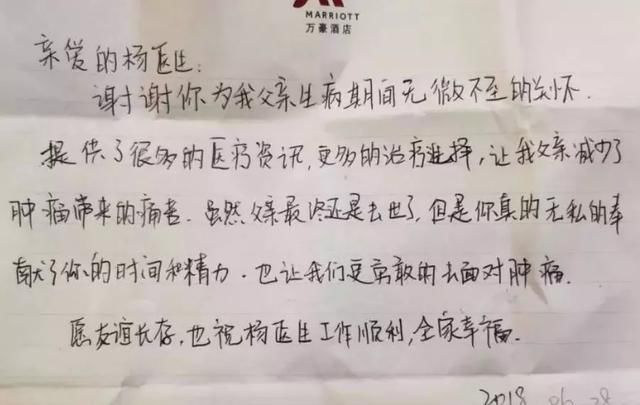 MARRIOTT
万豪酒店
亲爱的杨医生:
谢谢你为我父亲生病期间无微不至的关怀.
提供了很多的医疗资讯,更多的治疗选择,让我父亲减少了
肿瘤带来的痛苦.虽然父亲最终还是去世了,但是你真的无私的奉
献了你的时间和精力.也让我们更勇敢的去面对肿瘤.
愿友谊长存,也祝杨医生工作顺利,全家幸福.
2018.06.28